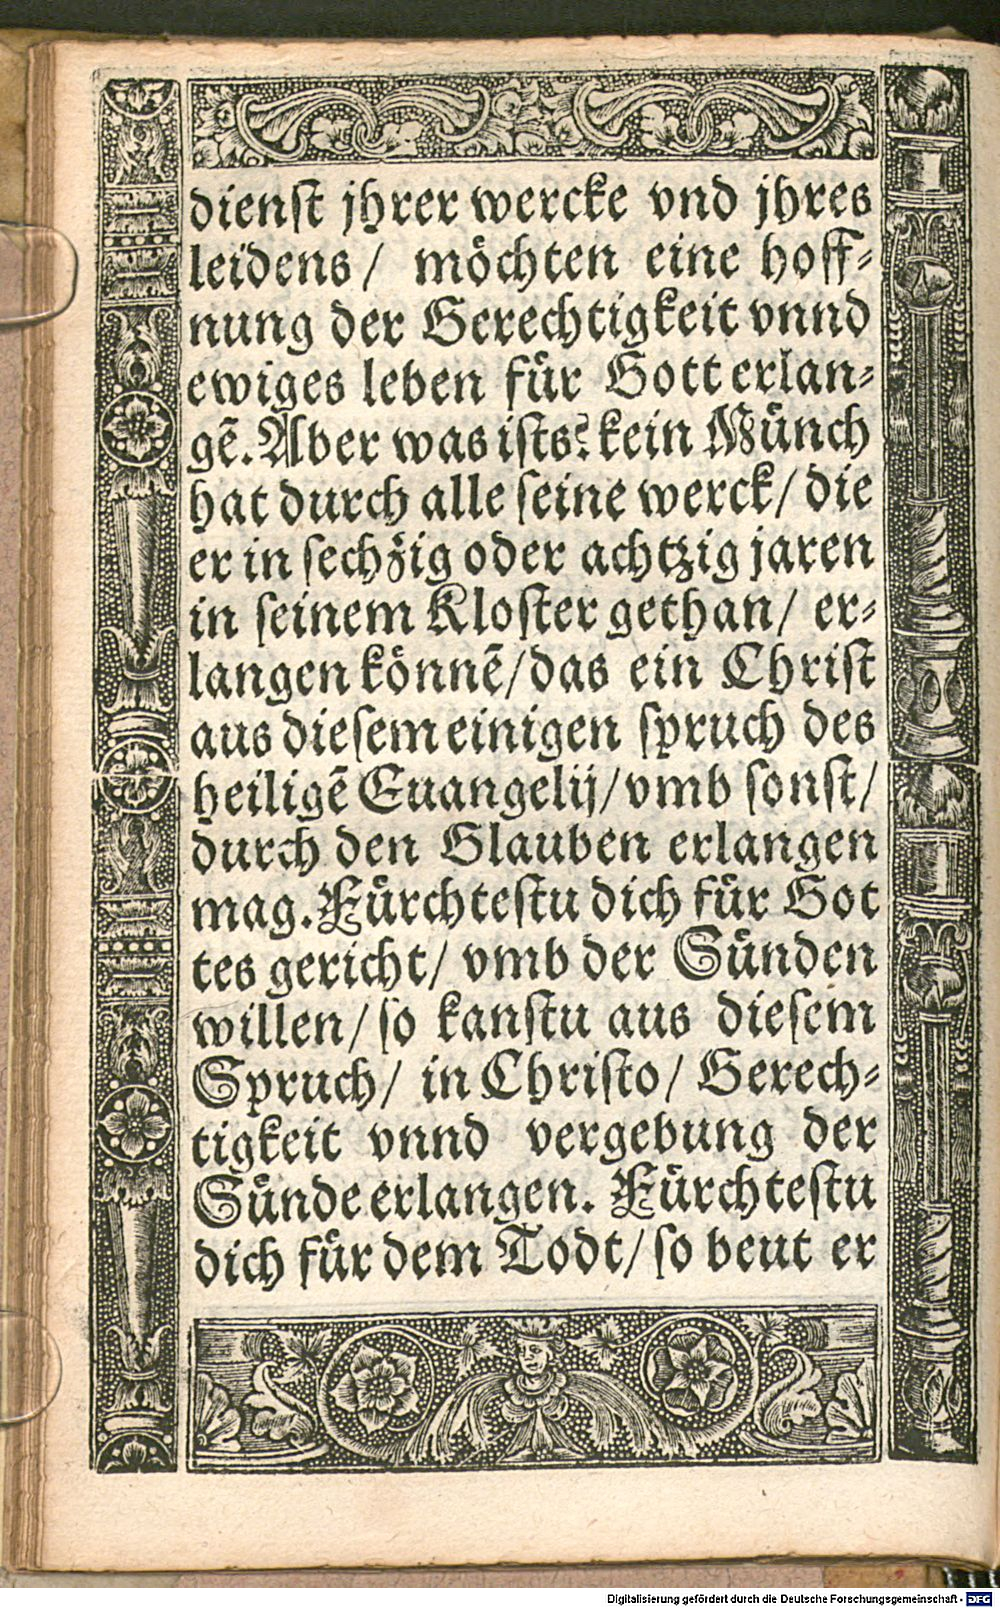 dienſt jhrer wercke vnd jhres
leidens / möchten eine hoff-
nung der Gerechtigkeit vnnd
ewiges leben für Gott erlan-
gē. Aber was iſts? kein Münch
hat durch alle ſeine werck / die
er in ſechzig oder achtzig jaren
in ſeinem Kloſter gethan / er-
langen könnē / das ein Chriſt
aus dieſem einigen ſpruch des
heiligē Euangelij / vmb ſonſt /
durch den Glauben erlangen
mag. Fürchteſtu dich für Got
tes gericht / vmb der Sünden
willen / ſo kanſtu aus dieſem
Spruch / in Chriſto / Gerech-
tigkeit vnnd vergebung der
Sünde erlangen. Fürchteſtu
dich für dem Todt / ſo beut er
Digitalisierung gefördert durch die Deutsche Forschungsgemeinschaft - DFG